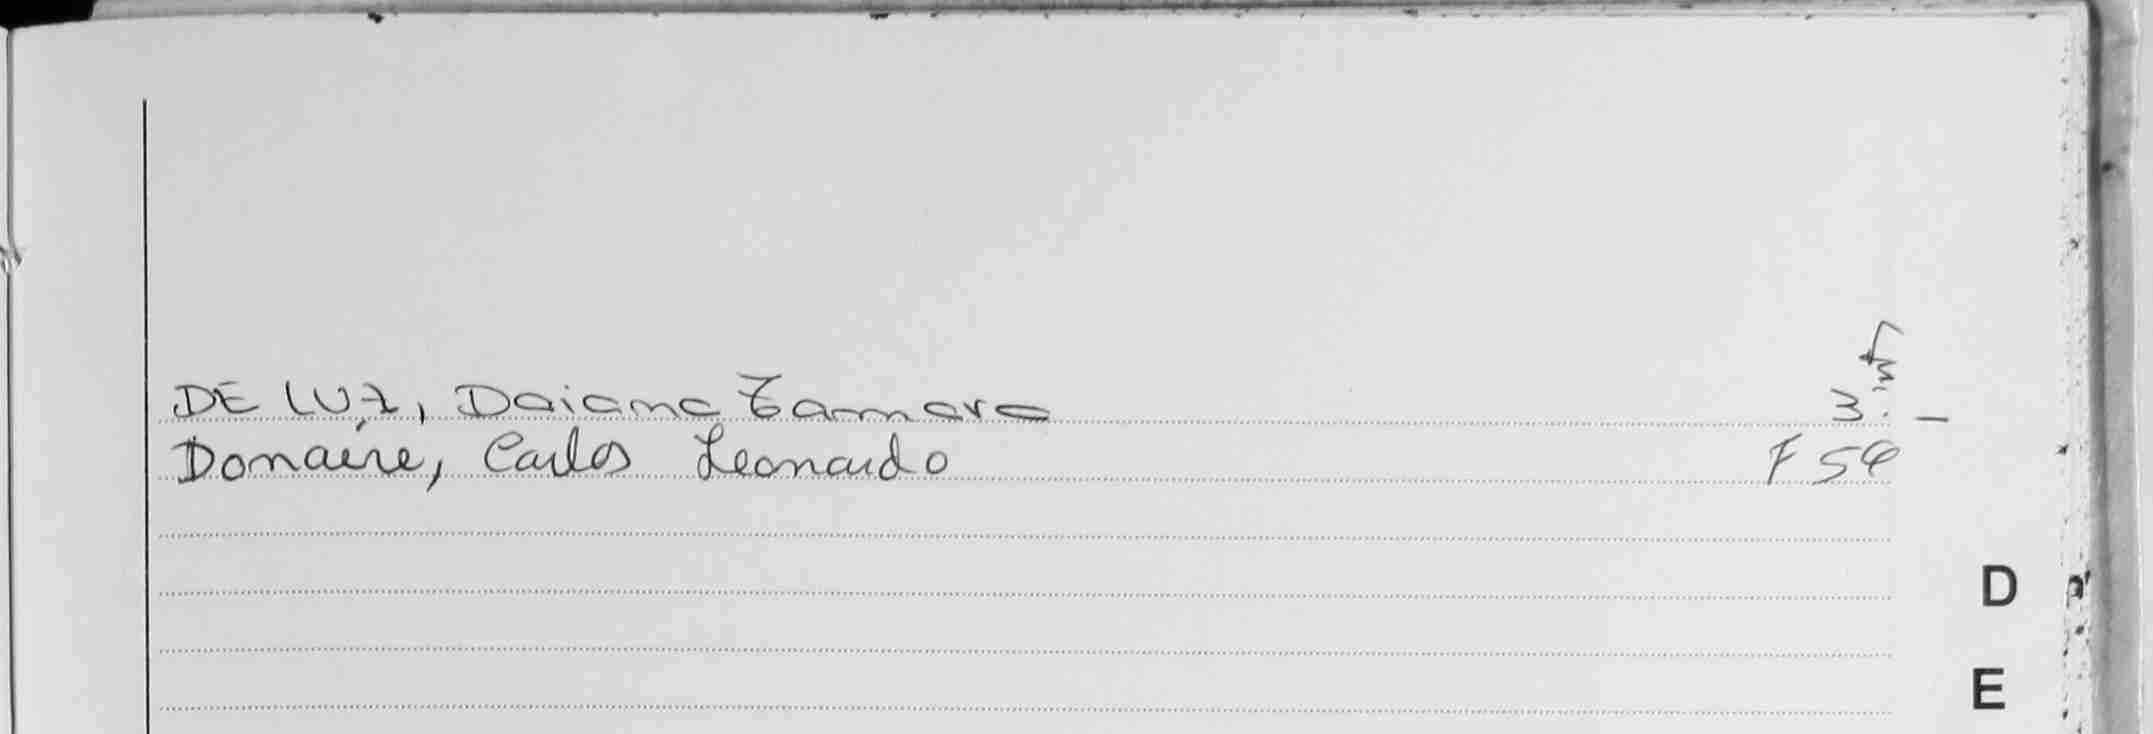 DE LUZ, Daiana Tamara 3
Domaire, Carlos Leonardo F 54
D
E